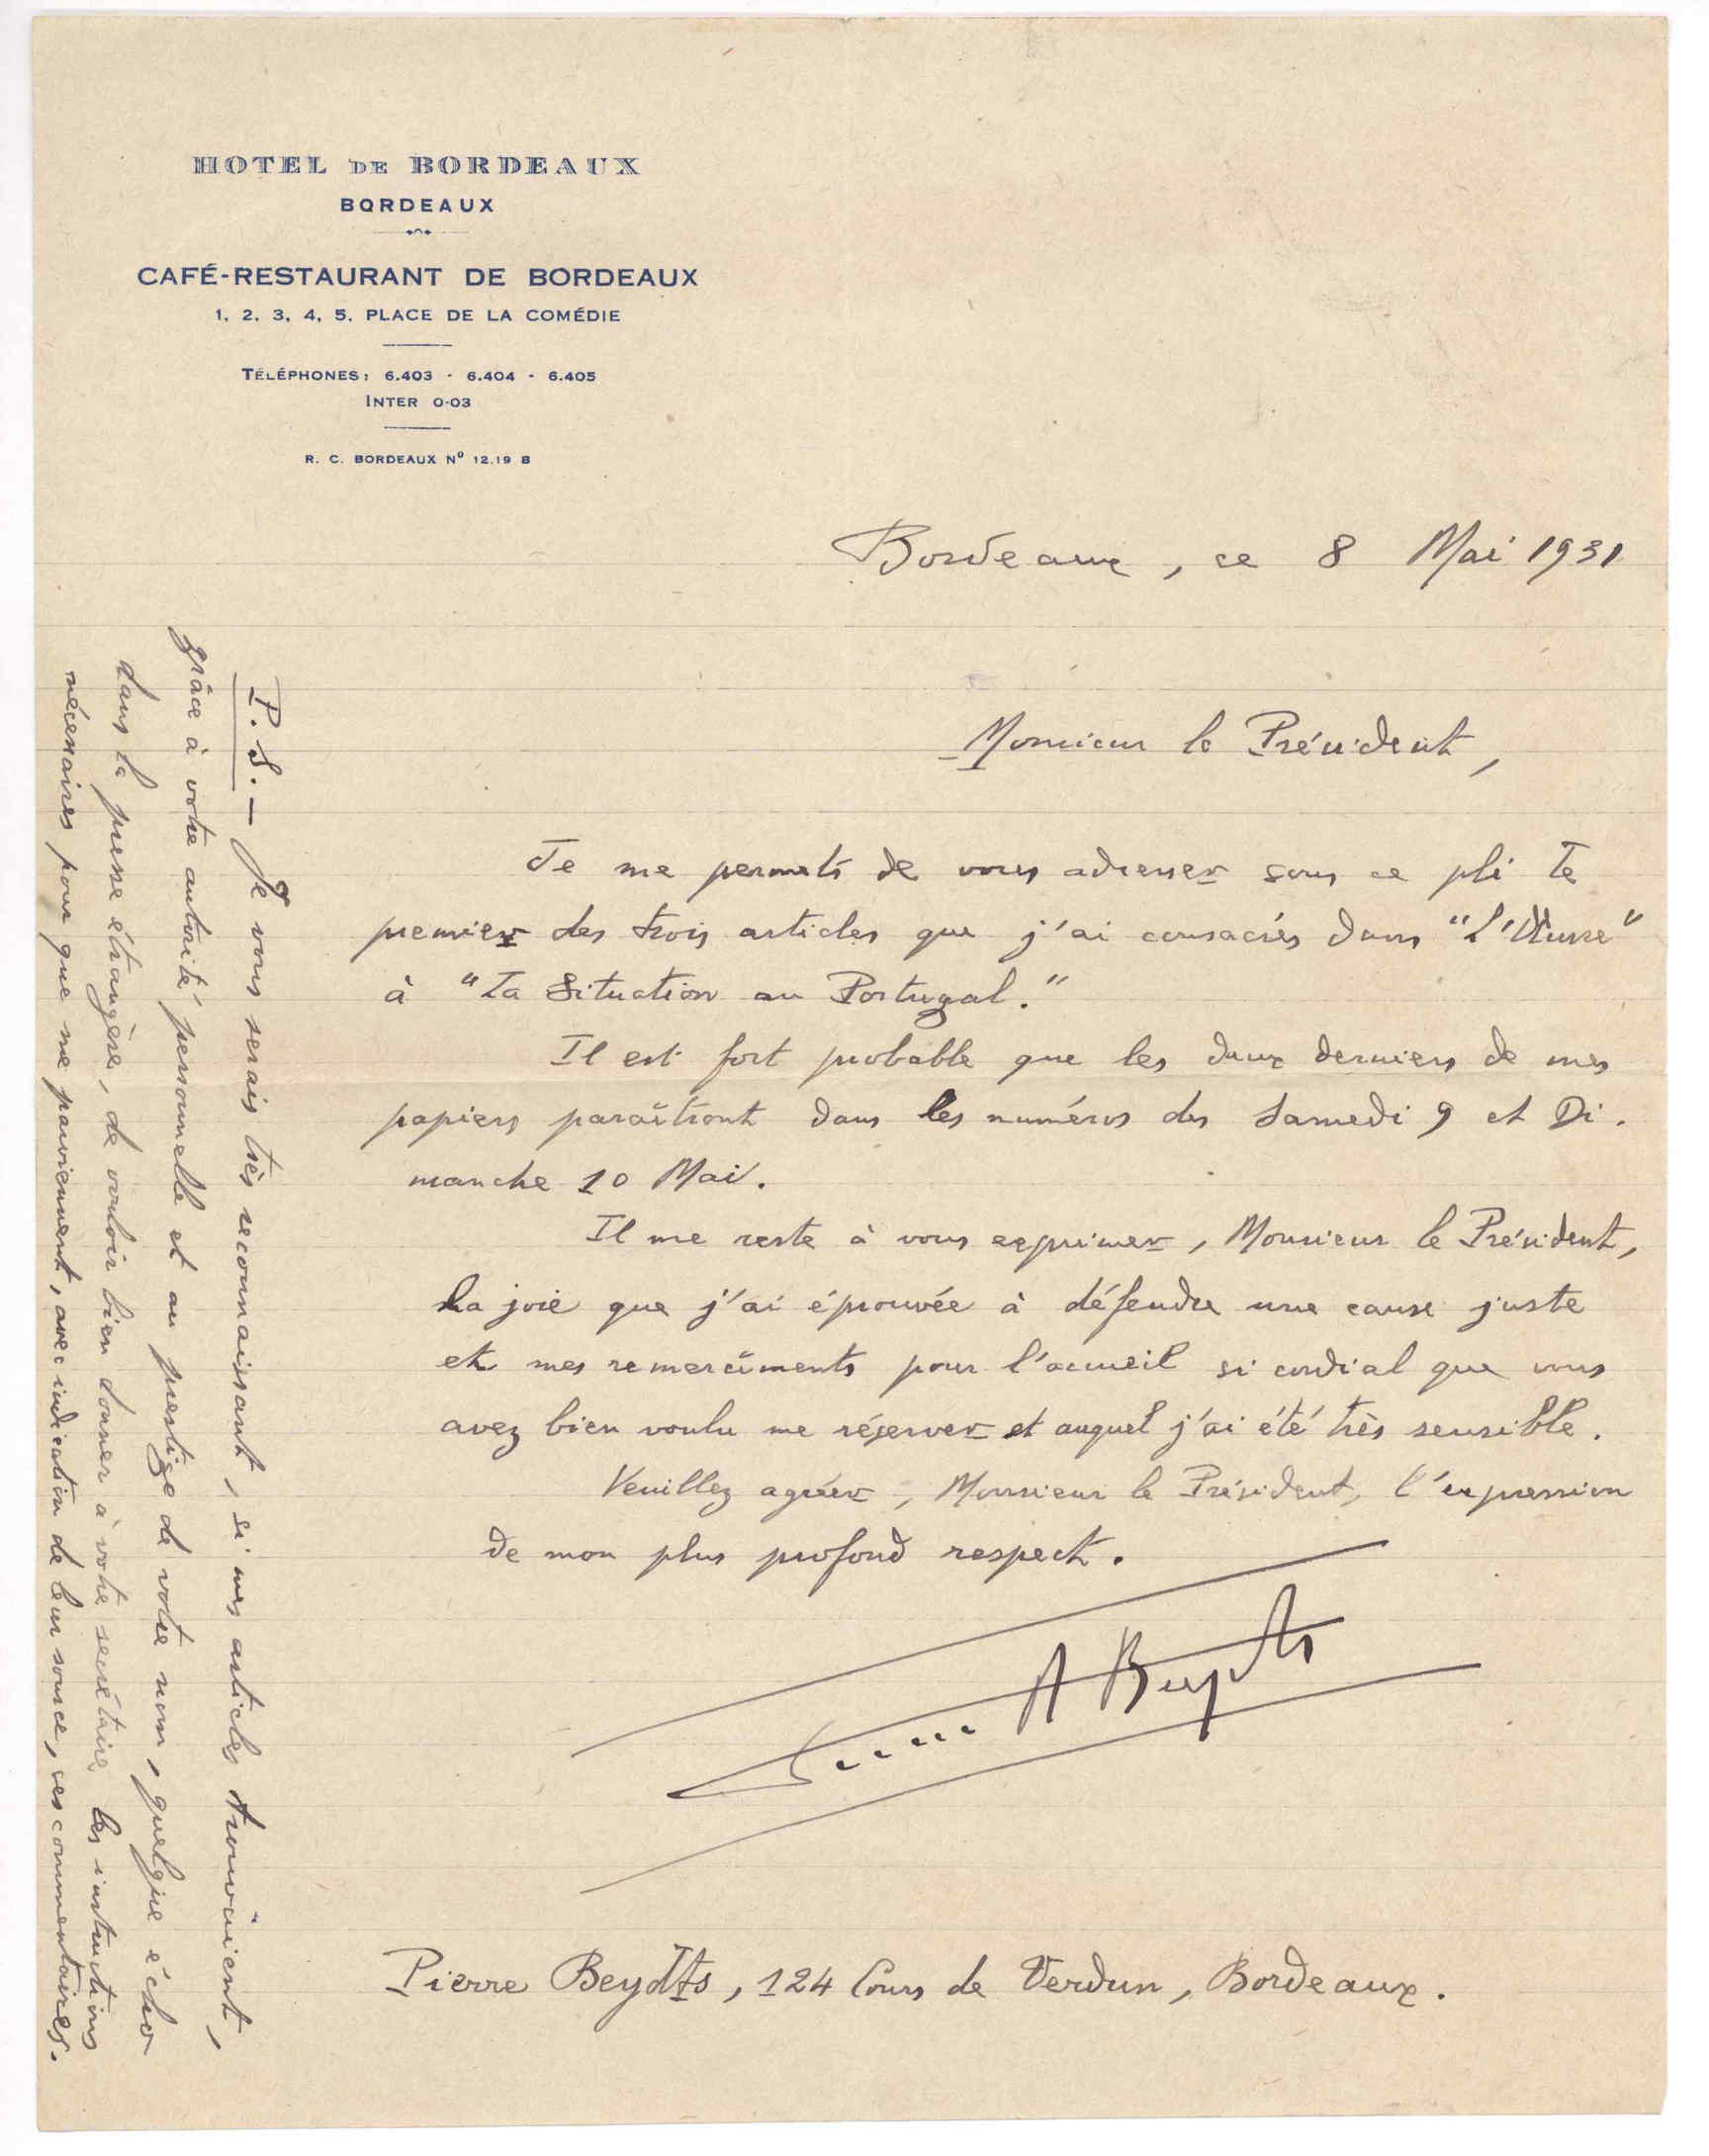 HOTEL DE BORDEAUX
BORDEAUX
CAFÉ-RESTAURANT DE BORDEAUX
1, 2, 3, 4, 5, PLACE DE LA COMÉDIE
TÉLÉPHONES: 6.403 - 6.404 - 6.405
INTER 0-03
R. C. BORDEAUX Nº 12.19 B
Bordeaux, ce 8 Mai 1931
Monsieur le Président,
Je me permets de vous adresser sous ce pli le
premier des trois articles que j'ai consacrés dans "L'Œuvre"
à "La Situation au Portugal."
Il est fort probable que les deux derniers de mes
papiers paraîtront dans les numéros des Samedi 9 et Di.
manche 10 Mai.
Il me reste à vous exprimer, Monsieur le Président,
la joie que j'ai éprouvée à défendre une cause juste
et mes remercîments pour l'accueil si cordial que vous
avez bien voulu me réserver et auquel j'ai été très sensible.
Veuillez agréer, Monsieur le Président, l'expression
de mon plus profond respect.
Beydts
Pierre Beydts, 124 Cours de Verdun, Bordeaux.
P.S. — Je vous serais très reconnaissant, si mes articles trouvaient,
grâce à votre autorité personnelle et au prestige de votre nom, quelque écho
dans la presse étrangère, de vouloir bien donner à votre secrétaire les instructions
nécessaires pour que me parviennent, avec indication de leur source, ces commentaires.